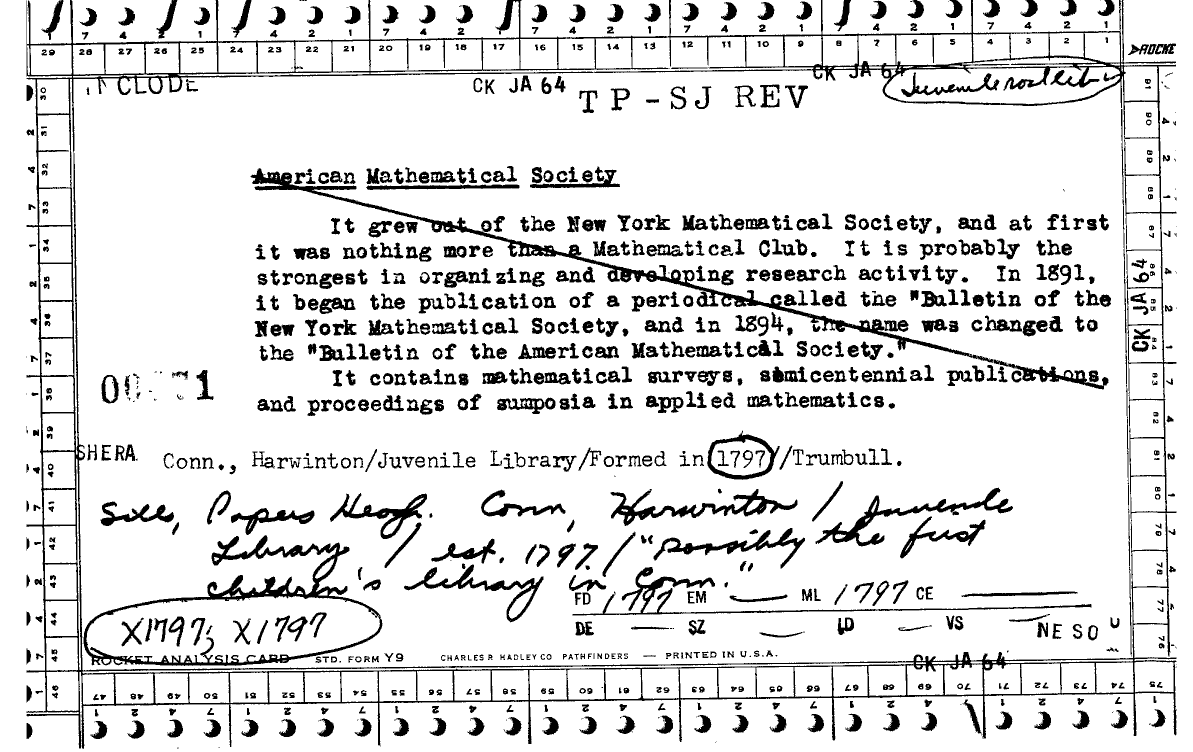 29 28 27 26 25 24 23 22 21 20 19 18 17 16 15 14 13 12 11 10 9 8 7 6 5 4 3 2 1
CLODE CK JA 64 CK JA 64
TP-SJ REV
Juvenile
American Mathematical Society
It grew out of the New York Mathematical Society, and at first
it was nothing more than a Mathematical Club. It is probably the
strongest in organizing and developing research activity. In 1891,
it began the publication of a periodical called the "Bulletin of the
New York Mathematical Society, and in 1894, the name was changed to
the "Bulletin of the American Mathematical Society."
It contains mathematical surveys, semicentennial publications,
and proceedings of sumposia in applied mathematics.
CK JA 64
SHERA Conn., Harwinton/Juvenile Library/Formed in 1797//Trumbull.
Papers Conn, Harwinton / Juvenile
Library / est. 1797 / "Possibly the first
children's library in Conn."
FD 1797 EM — ML 1797 CE —
DE — SZ — LD — VS — NE SO U
X1797; X1797
ROCKET ANALYSIS CARD STD. FORM Y9 CHARLES R HADLEY CO PATHFINDERS — PRINTED IN U.S.A.
CK JA 64
47 48 49 50 51 52 53 54 55 56 57 58 59 60 61 62 63 64 65 66 67 68 69 70 71 72 73 74 75